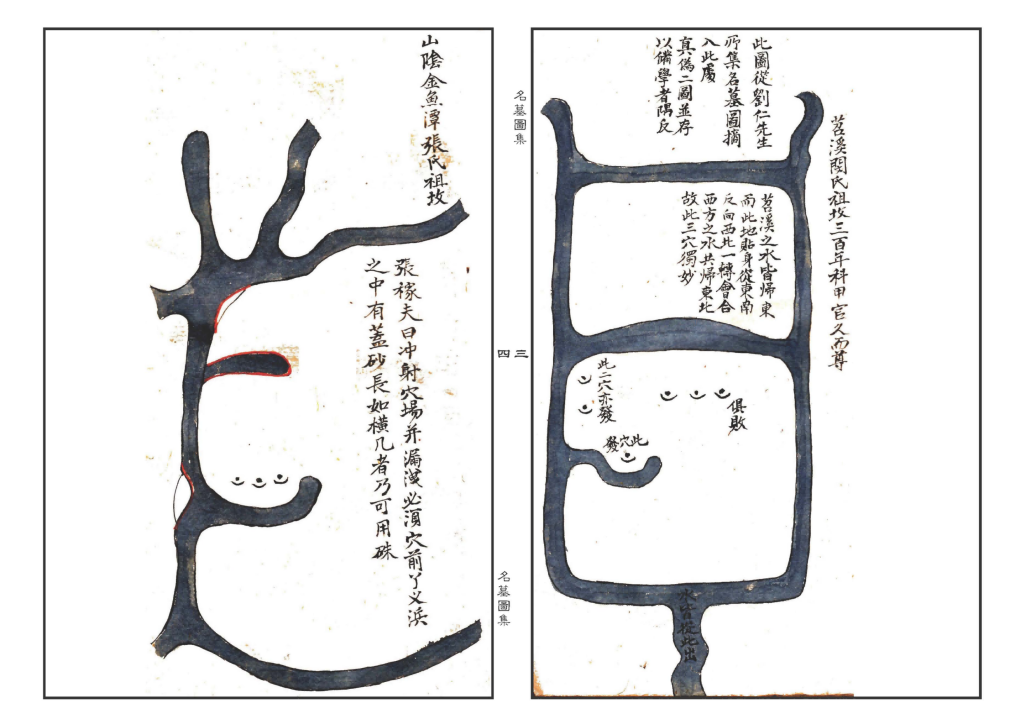 苕溪閔氏祖坟三百年科甲官久而尊
此圖從劉仁先生
所集名墓圖摘
入此處
真偽二圖並存
以備學者隅反
苕溪之水皆歸東
而此地貼身從東南
反向西北一轉會合
西方之水共歸東北
故此三穴獨妙
俱敗
此二穴亦發
此穴發
水皆從此出
名墓圖集
三
四
名墓圖集
山陰金魚潭張氏祖坟
張稼夫曰冲射穴場并漏洩必須穴前丫义浜
之中有蓋砂長如橫几者乃可用硃